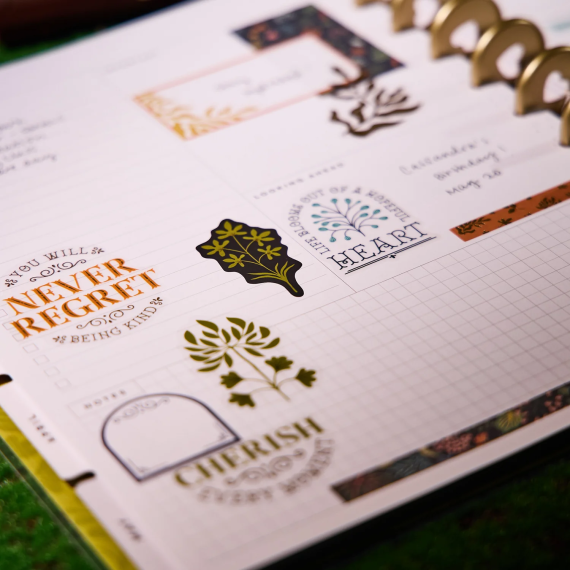 LOOKING AHEAD
Cassandra's
Birthday!
Aug. 20
LIFE BLOOMS OUT OF A HOPEFUL
HEART
YOU WILL
NEVER
REGRET
BEING KIND
NOTES
CHERISH
EVERY MOMENT